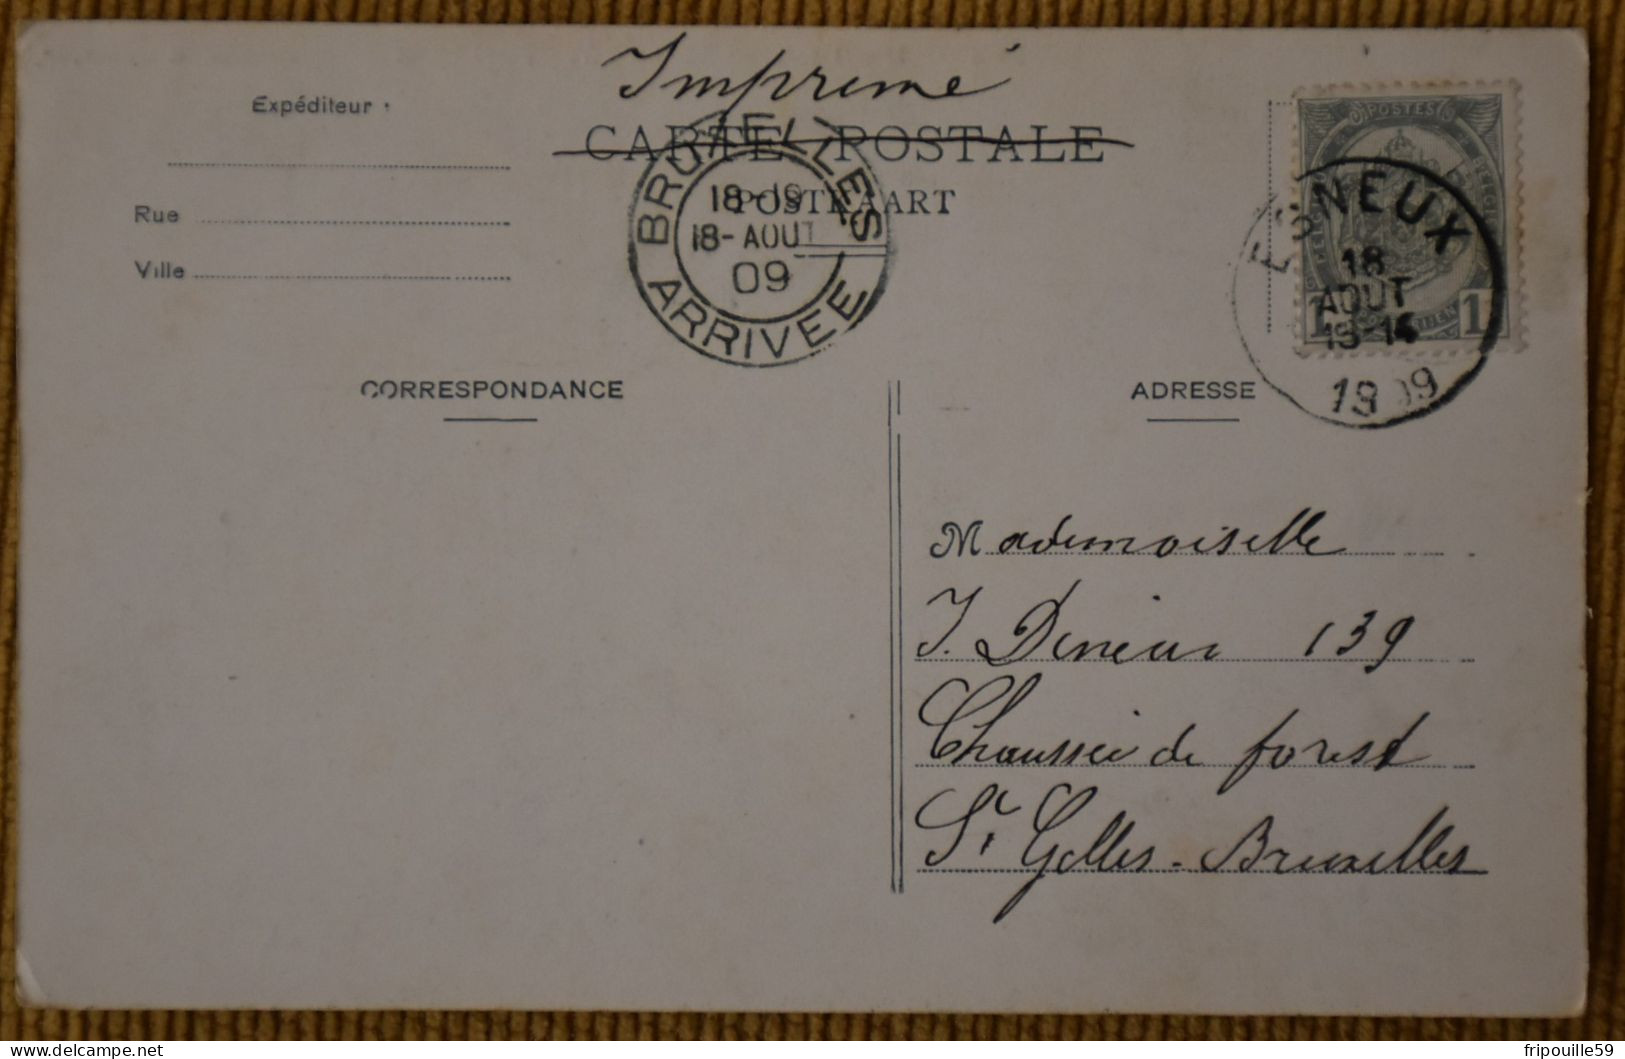 Imprimé
Expéditeur :
CARTE POSTALE
POSTKAART
Rue
Ville
BRUXELLES
18-19
18-AOUT
09
ARRIVEE
POSTES
1 1
ESNEUX
18
AOUT
13-14
1909
CORRESPONDANCE
ADRESSE
Mademoiselle
J. 139
Chaussée de forest
St Gilles-Bruxelles
delcampe.net
fripouille59